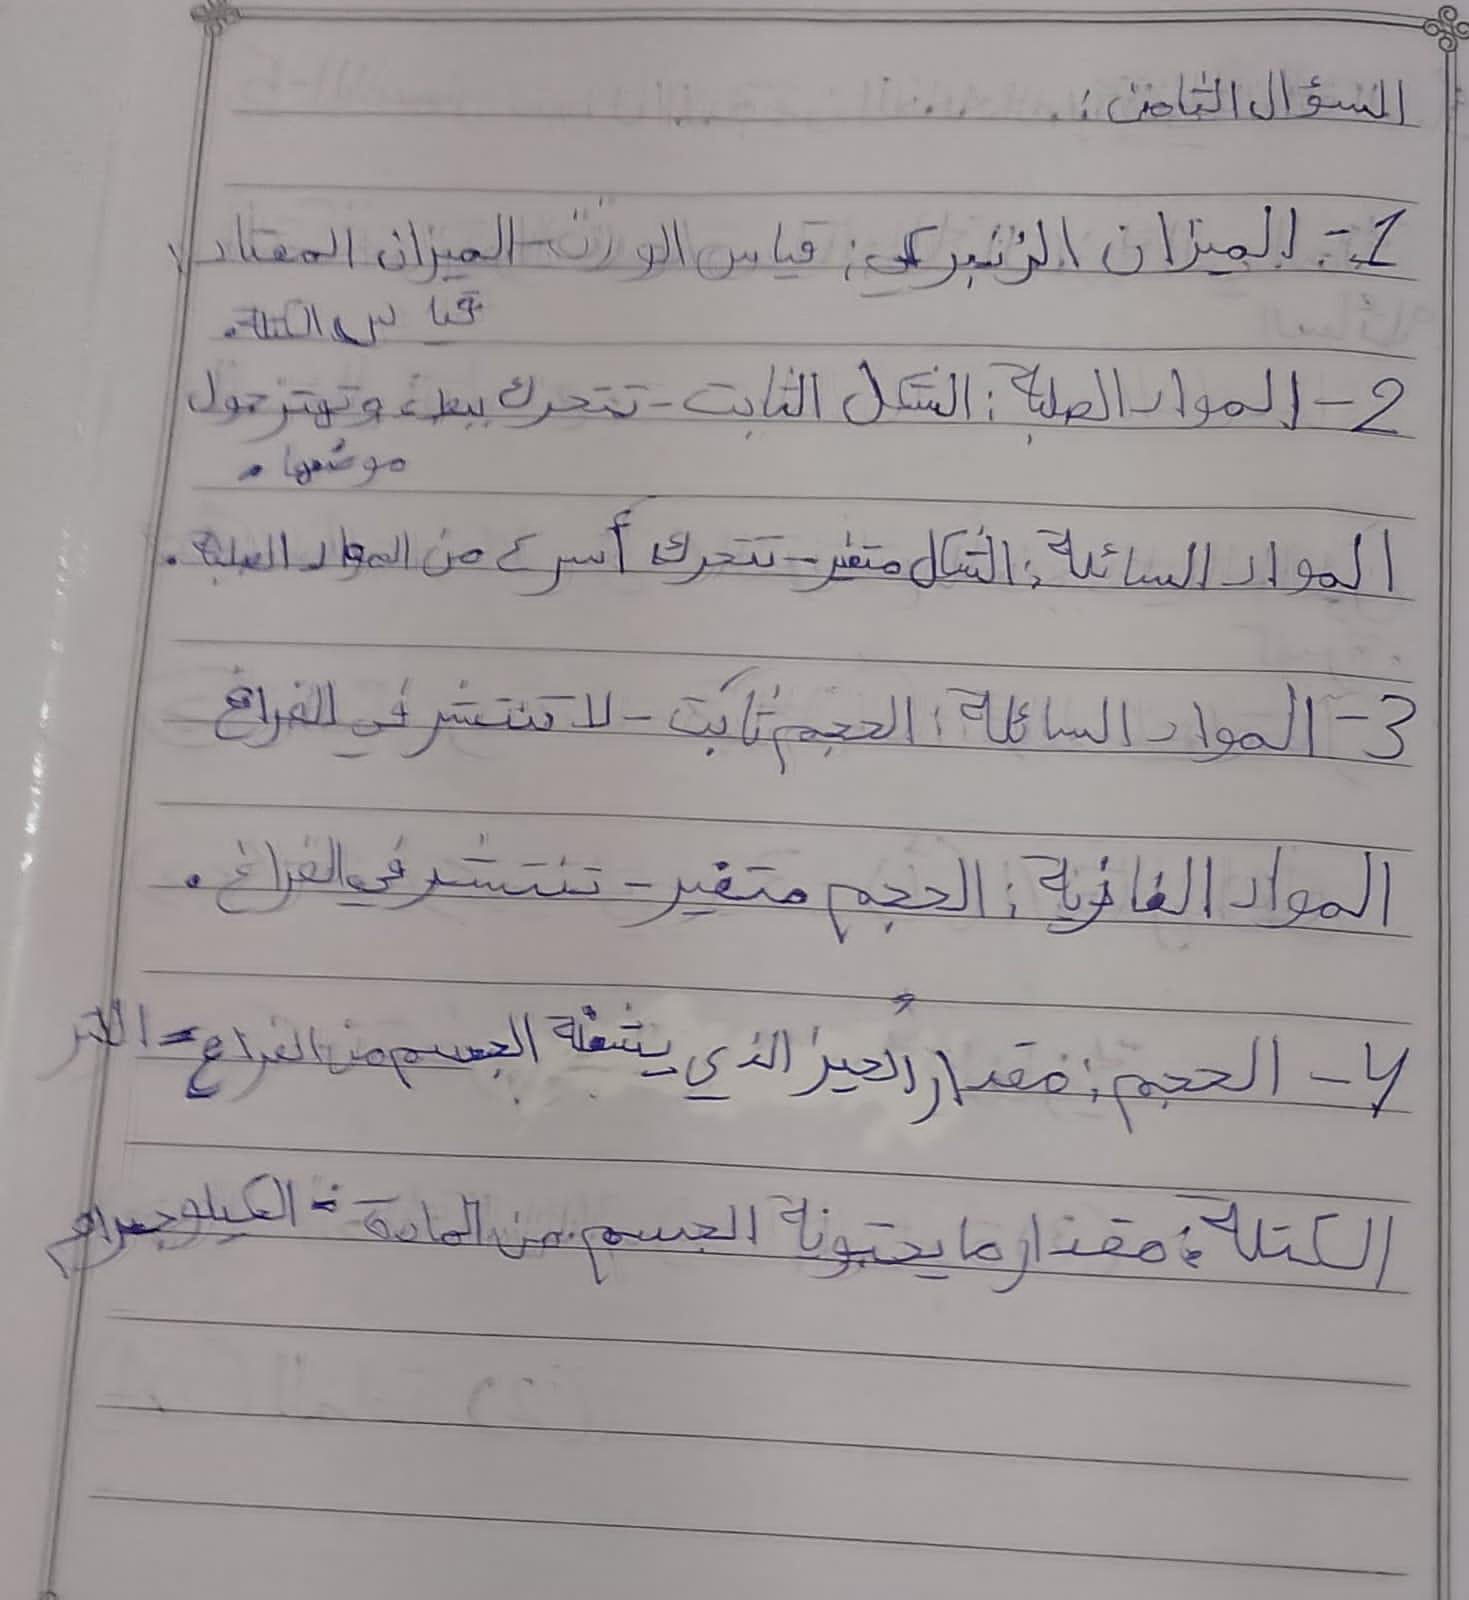 السؤال الثامن :
1- الميزان الزنبركي : قياس الوزن - الميزان المعتاد
قياس الكتلة.
2- المواد الصلبة : الشكل الثابت - تتحرك ببطء وتهتز حول
موضعها .
المواد السائلة : الشكل متغير - تتحرك أسرع من المواد الصلبة .
3- المواد السائلة : الحجم ثابت - لا تنتشر في الفراغ
المواد الغازية : الحجم متغير - تنتشر في الفراغ .
4- الحجم : مقدار الحيز الذي يشغلة الجسم من الفراغ = اللتر
الكتلة : مقدار ما يحتوية الجسم من المادة = الكيلوجرام